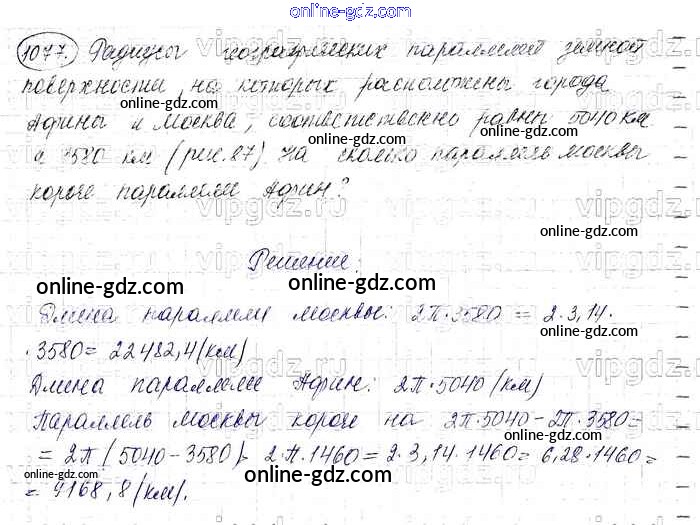 online-gdz.com
1077. Радиусы географических параллелей земной
поверхности, на которых расположены города
online-gdz.com online-gdz.com
Афины и Москва, соответственно равны 5040 км
и 3580 км (рис. 87). На сколько параллель Москвы
vipgdz.ru vipgdz.ru vipgdz
короче параллели Афин?
Решение:
online-gdz.com online-gdz.com
Длина параллели Москвы: 2π·3580 = 2·3,14·
online-gdz.com
·3580 = 22482,4 (км)
vipgdz.ru vipgdz.ru vipgdz
Длина параллели Афин: 2π·5040 (км)
online-gdz.com online-gdz.com
Параллель Москвы короче на 2π·5040-2π·3580=
= 2π(5040-3580)= 2·π·1460 = 2·3,14·1460 = 6,28·1460 =
online-gdz.com
= 9168,8 (км).
online-gdz.com